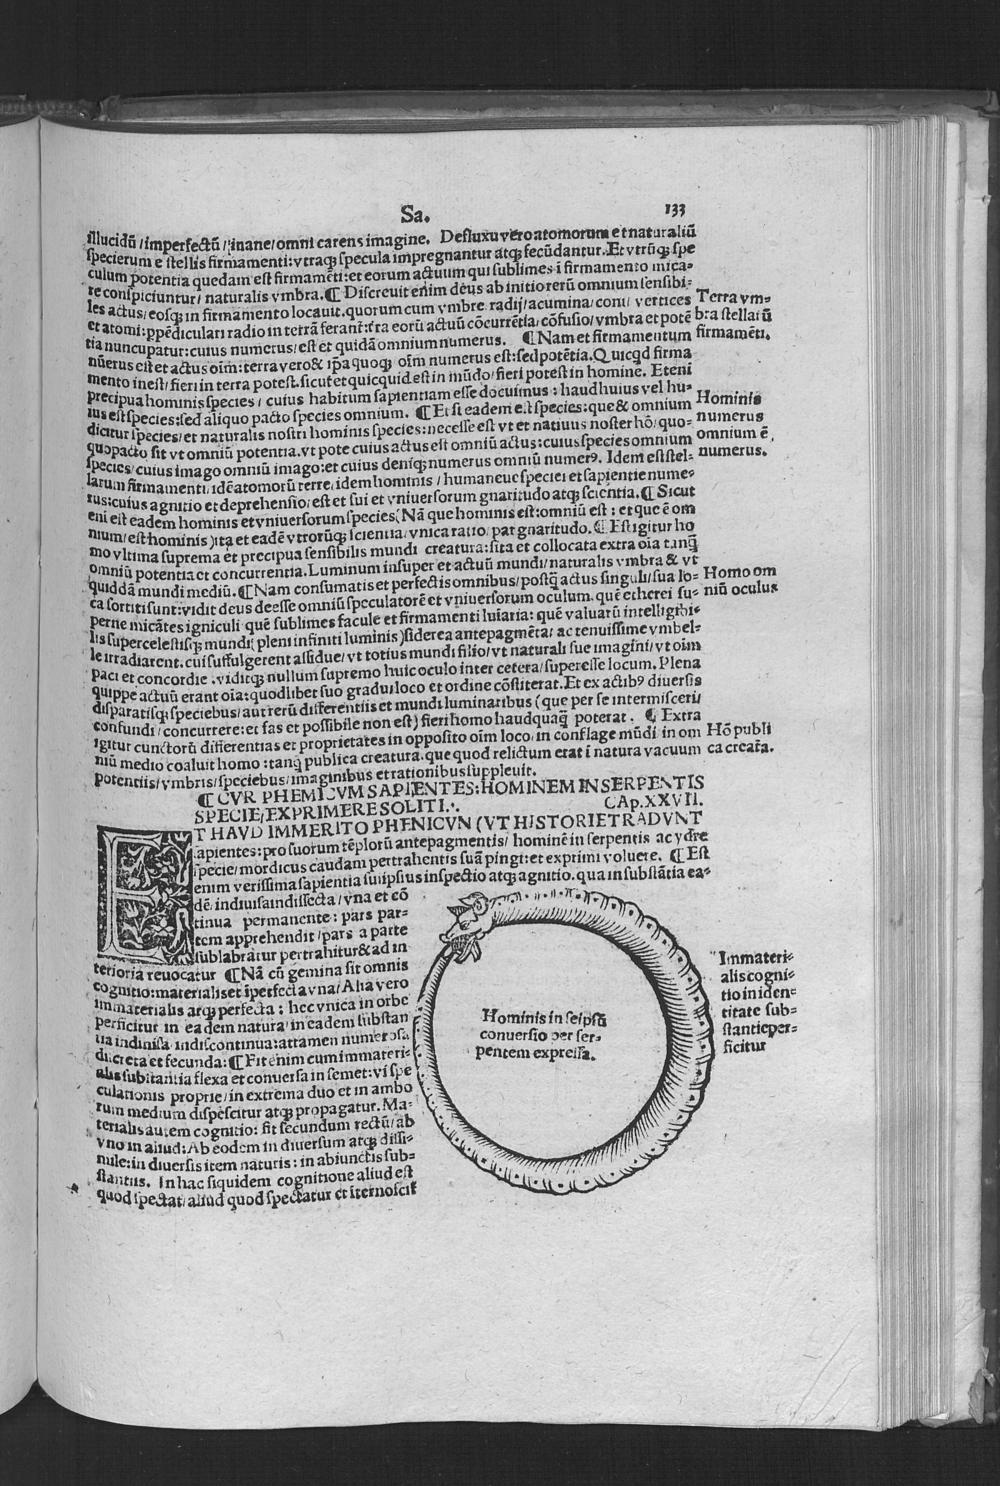 Sa. 133
illucidū/imperfectū/inane/omni carens imagine. Defluxu vero atomorum et naturaliū
specierum e stellis firmamenti: vtraq; specula impregnantur atq; fecūdantur. Et vtrūq; spe
culum potentia quedam est firmamēti: et eorum actuum qui sublimes i firmamento mica-
re conspiciuntur/naturalis vmbra. ¶ Discreuit enim deus ab initio rerū omnium sensibi-
les actus/eosq; in firmamento locauit. quorum cum vmbre radij/acumina/coni/vertices
et atomi: ppēdiculari radio in terrā ferant: t'ra eorū actuū cōcurrētia/cōfusio/vmbra et potē
tia nuncupatur: cuius numerus/est et quidā omnium numerus. ¶ Nam et firmamentum
nūerus est et actus oim: terra vero & ipa quoq; oim numerus est: sed potētia. Quicqd firma
mento inest/fieri in terra potest. sicut et quicquid est in mūdo/fieri potest in homine. Eteni
precipua hominis species/cuius habitum sapientiam esse docuimus: haud huius vel hu-
ius est species: sed aliquo pacto species omnium. ¶ Et si eadem est species: que & omnium
dicitur species/et naturalis nostri hominis species: necesse est vt et natiuus noster ho/quo-
quopacto sit vt omniū potentia. vt pote cuius actus est omniū actus: cuius species omnium
species/cuius imago omniū imago: et cuius deniq; numerus omniū numer⁹. Idem est stel-
larum firmamenti/idē atomorū terre/idem hominis/humaneue speciei et sapientie nume-
rus: cuius agnitio et deprehensio/est et sui et vniuersorum gnaritudo atq; scientia. ¶ Sicut
eni est eadem hominis et vniuersorum species (Nā que hominis est: omniū est: et que ē om
nium/est hominis) ita et eadē vtrorūq; scientia/vnica ratio/par gnaritudo. ¶ Est igitur ho
mo vltima suprema et precipua sensibilis mundi creatura: sita et collocata extra oia tanq̄
omniū potentia et concurrentia. Luminum insuper et actuū mundi/naturalis vmbra & vt
quiddā mundi mediū. ¶ Nam consumatis et perfectis omnibus/postq̄ actus singuli/sua lo-
ca sortiti sunt: vidit deus deesse omniū speculatorē et vniuersorum oculum. quē etherei su-
perne micātes igniculi quē sublimes facule et firmamenti luiaria: quē valuarū intelligibi-
lis supercelestisq; mundi (pleni infiniti luminis) siderea antepagmēta/ac tenuissime vmbel-
le irradiarent. cui suffulgerent assidue/vt totius mundi filio/vt naturali sue imagini/vt oim
paci et concordie. viditq; nullum supremo huic oculo inter cetera/superesse locum. Plena
quippe actuū erant oia: quodlibet suo gradu/loco et ordine cōstiterat. Et ex actib⁹ diuersis
disparatisq; speciebus/aut rerū differentiis et mundi luminaribus (que per se intermisceri/
confundi/concurrere: et fas et possibile non est) fieri homo haudquaq̄ poterat. ¶ Extra
igitur cunctorū differentias et proprietates in opposito oim loco/in conflage mūdi/in om
niū medio coaluit homo: tanq̄ publica creatura. que quod relictum erat i natura vacuum
potentiis/vmbris/speciebus/imaginibus et rationibus suppleuit.
Terra vm-
bra stellaiū
firmamēti.
Hominis
numerus
omnium ē
numerus.
Homo om
niū oculus
Hō publi
ca creat̄a.
¶ CVR PHEMICVM SAPIENTES: HOMINEM IN SERPENTIS
SPECIE/EXPRIMERE SOLITI. CAp. XXVII.
ET HAVD IMMERITO PHENICVN (VT HISTORIE TRADVNT
sapientes: pro suorum tēplorū antepagmentis/hominē in serpentis ac ydre
specie/mordicus caudam pertrahentis suā pingi: et exprimi voluere. ¶ Est
enim verissima sapientia sui ipsius inspectio atq; agnitio. qua in substātia ea-
dē indiuisa indissecta/vna et cō
tinua permanente: pars par-
tem apprehendit/pars a parte
sublabratur pertrahitur & ad in
teriora reuocatur ¶ Nā cū gemina sit omnis
cognitio: materialis et īperfecta vna/Alia vero
immaterialis atq; perfecta: hec vnica in orbe
perficitur in eadem natura/in eadem substan
tia indiuisa indiscontinua: attamen numerosa
discreta et fecunda: ¶ Fit enim cum immateri-
alis substantia flexa et conuersa in semet: vi spe
culationis proprie/in extrema duo et in ambo
rum medium dispescitur atq; propagatur. Ma-
terialis autem cognitio: fit secundum rectū/ab
vno in aliud: Ab eodem in diuersum atq; dissi-
mile: in diuersis item naturis: in abiunctis sub-
stantiis. In hac siquidem cognitione aliud est
quod spectat/aliud quod spectatur et iternoscit
Hominis in seipsū
conuersio per ser-
pentem expressa.
Immateri-
alis cogni-
tio in iden-
titate sub-
stantie per-
ficitur